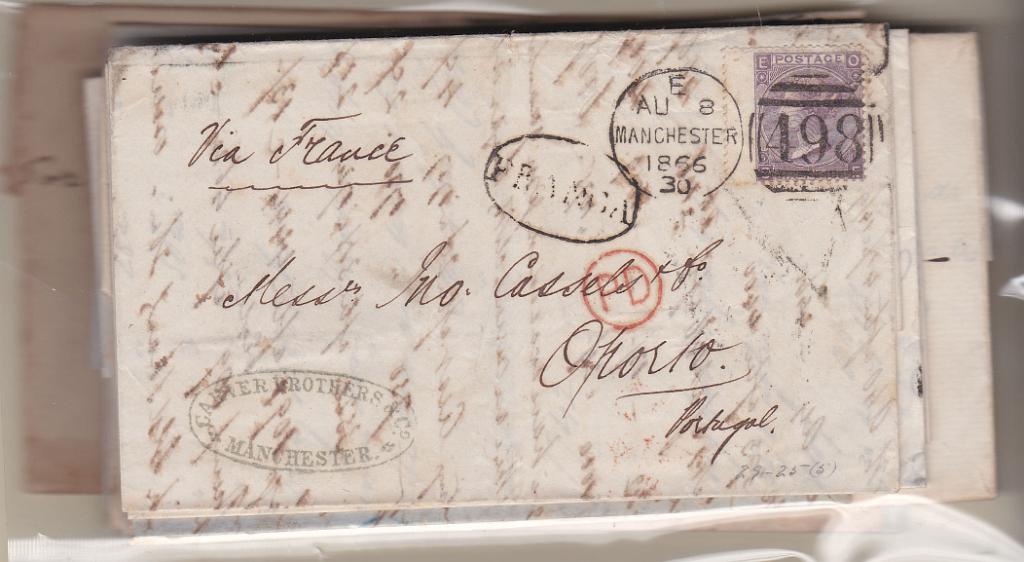 E POSTAGE O
E
AU 8
MANCHESTER
1866
30
498
Via France
FRANCA
PD
Messrs Jno. Cassels & Co.
Oporto.
Portugal.
BROTHERS & Co
MANCHESTER.
29-25 (5)